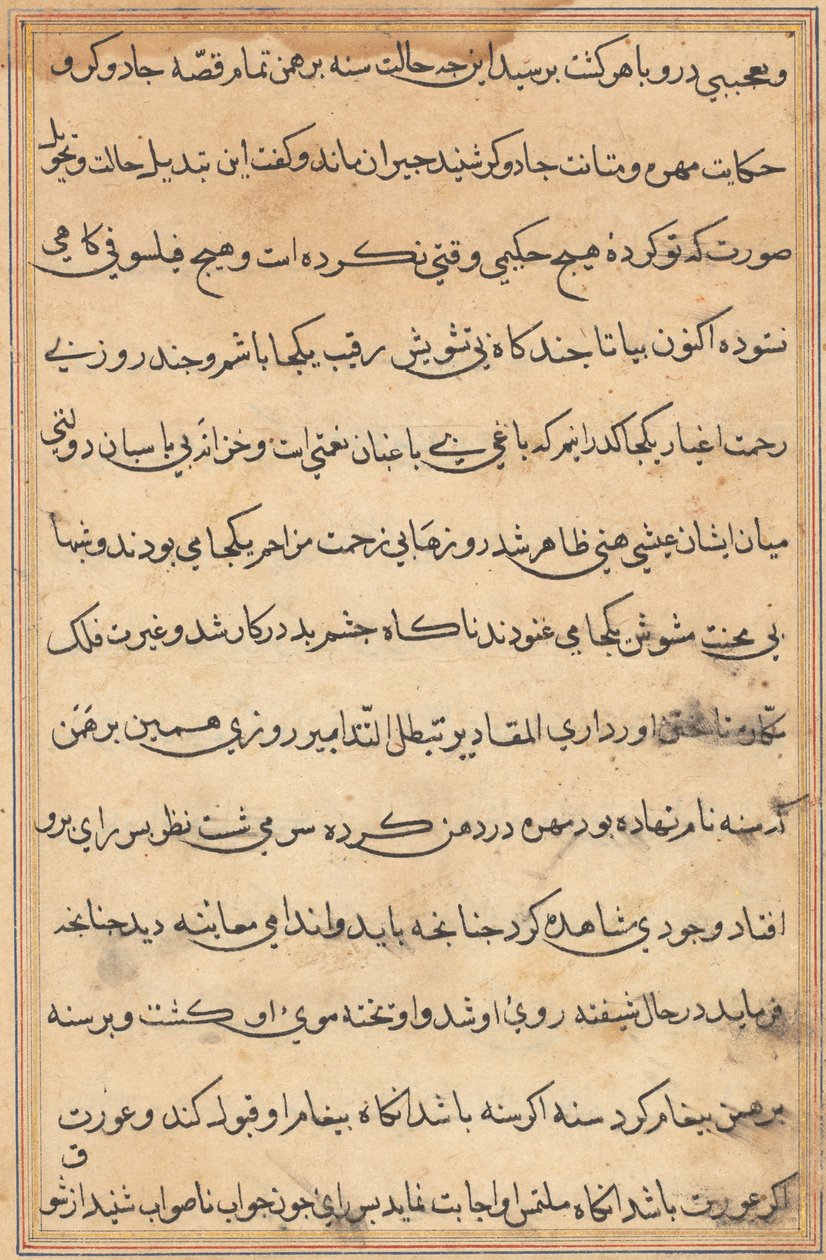 و تعجبی درو باهر کشت برسید این جه حالت سنه برهمن تمام قصّه جادوکر و
حکایت مهره و متانت جادوکر شنید حیران ماند و کفت این تبدیل حالت و تحویل
صورت که تو کردهٔ هیج حکیمی وقتی نکرده است و هیج فیلسوفی کاهی
ننموده اکنون بیا تا جند کاه بی تشویش رقیب یکجا باشم و جند روز بی
زحمت اغیار یکجا کذرانیم که باغی بی باغبان نعمتی است و خزانهٔ بی باسبان دولتی
میان ایشان عیشی هنی ظاهر شد روزها بی زحمت مزاحم یکجا می بودند و شبها
بی محنت مشوش یکجا می غنودند ناکاه جشم بد در کار شد و غیرت فلک
المقادیر تبطل التّدابیر روزی همین برهمن
که سنه نام نهاده بود مهره در دهن کرده سر می شست نظر بسر رای برو
افتاد وجودی مشاهده کرد جنانجه باید و اندامی معاینه دید جنانجه
فرماید در حال شیفته رویٔ او شد و اویخته مویٔ او کشت و بر سنه
برهمن بیغام کرد سنه اکر سنه باشد انکاه بیغام او قبول کند و عورت
اکر عورت باشد انکاه ملتمس او اجابت نماید بسر رای جون جواب ناصواب شنید از شوق